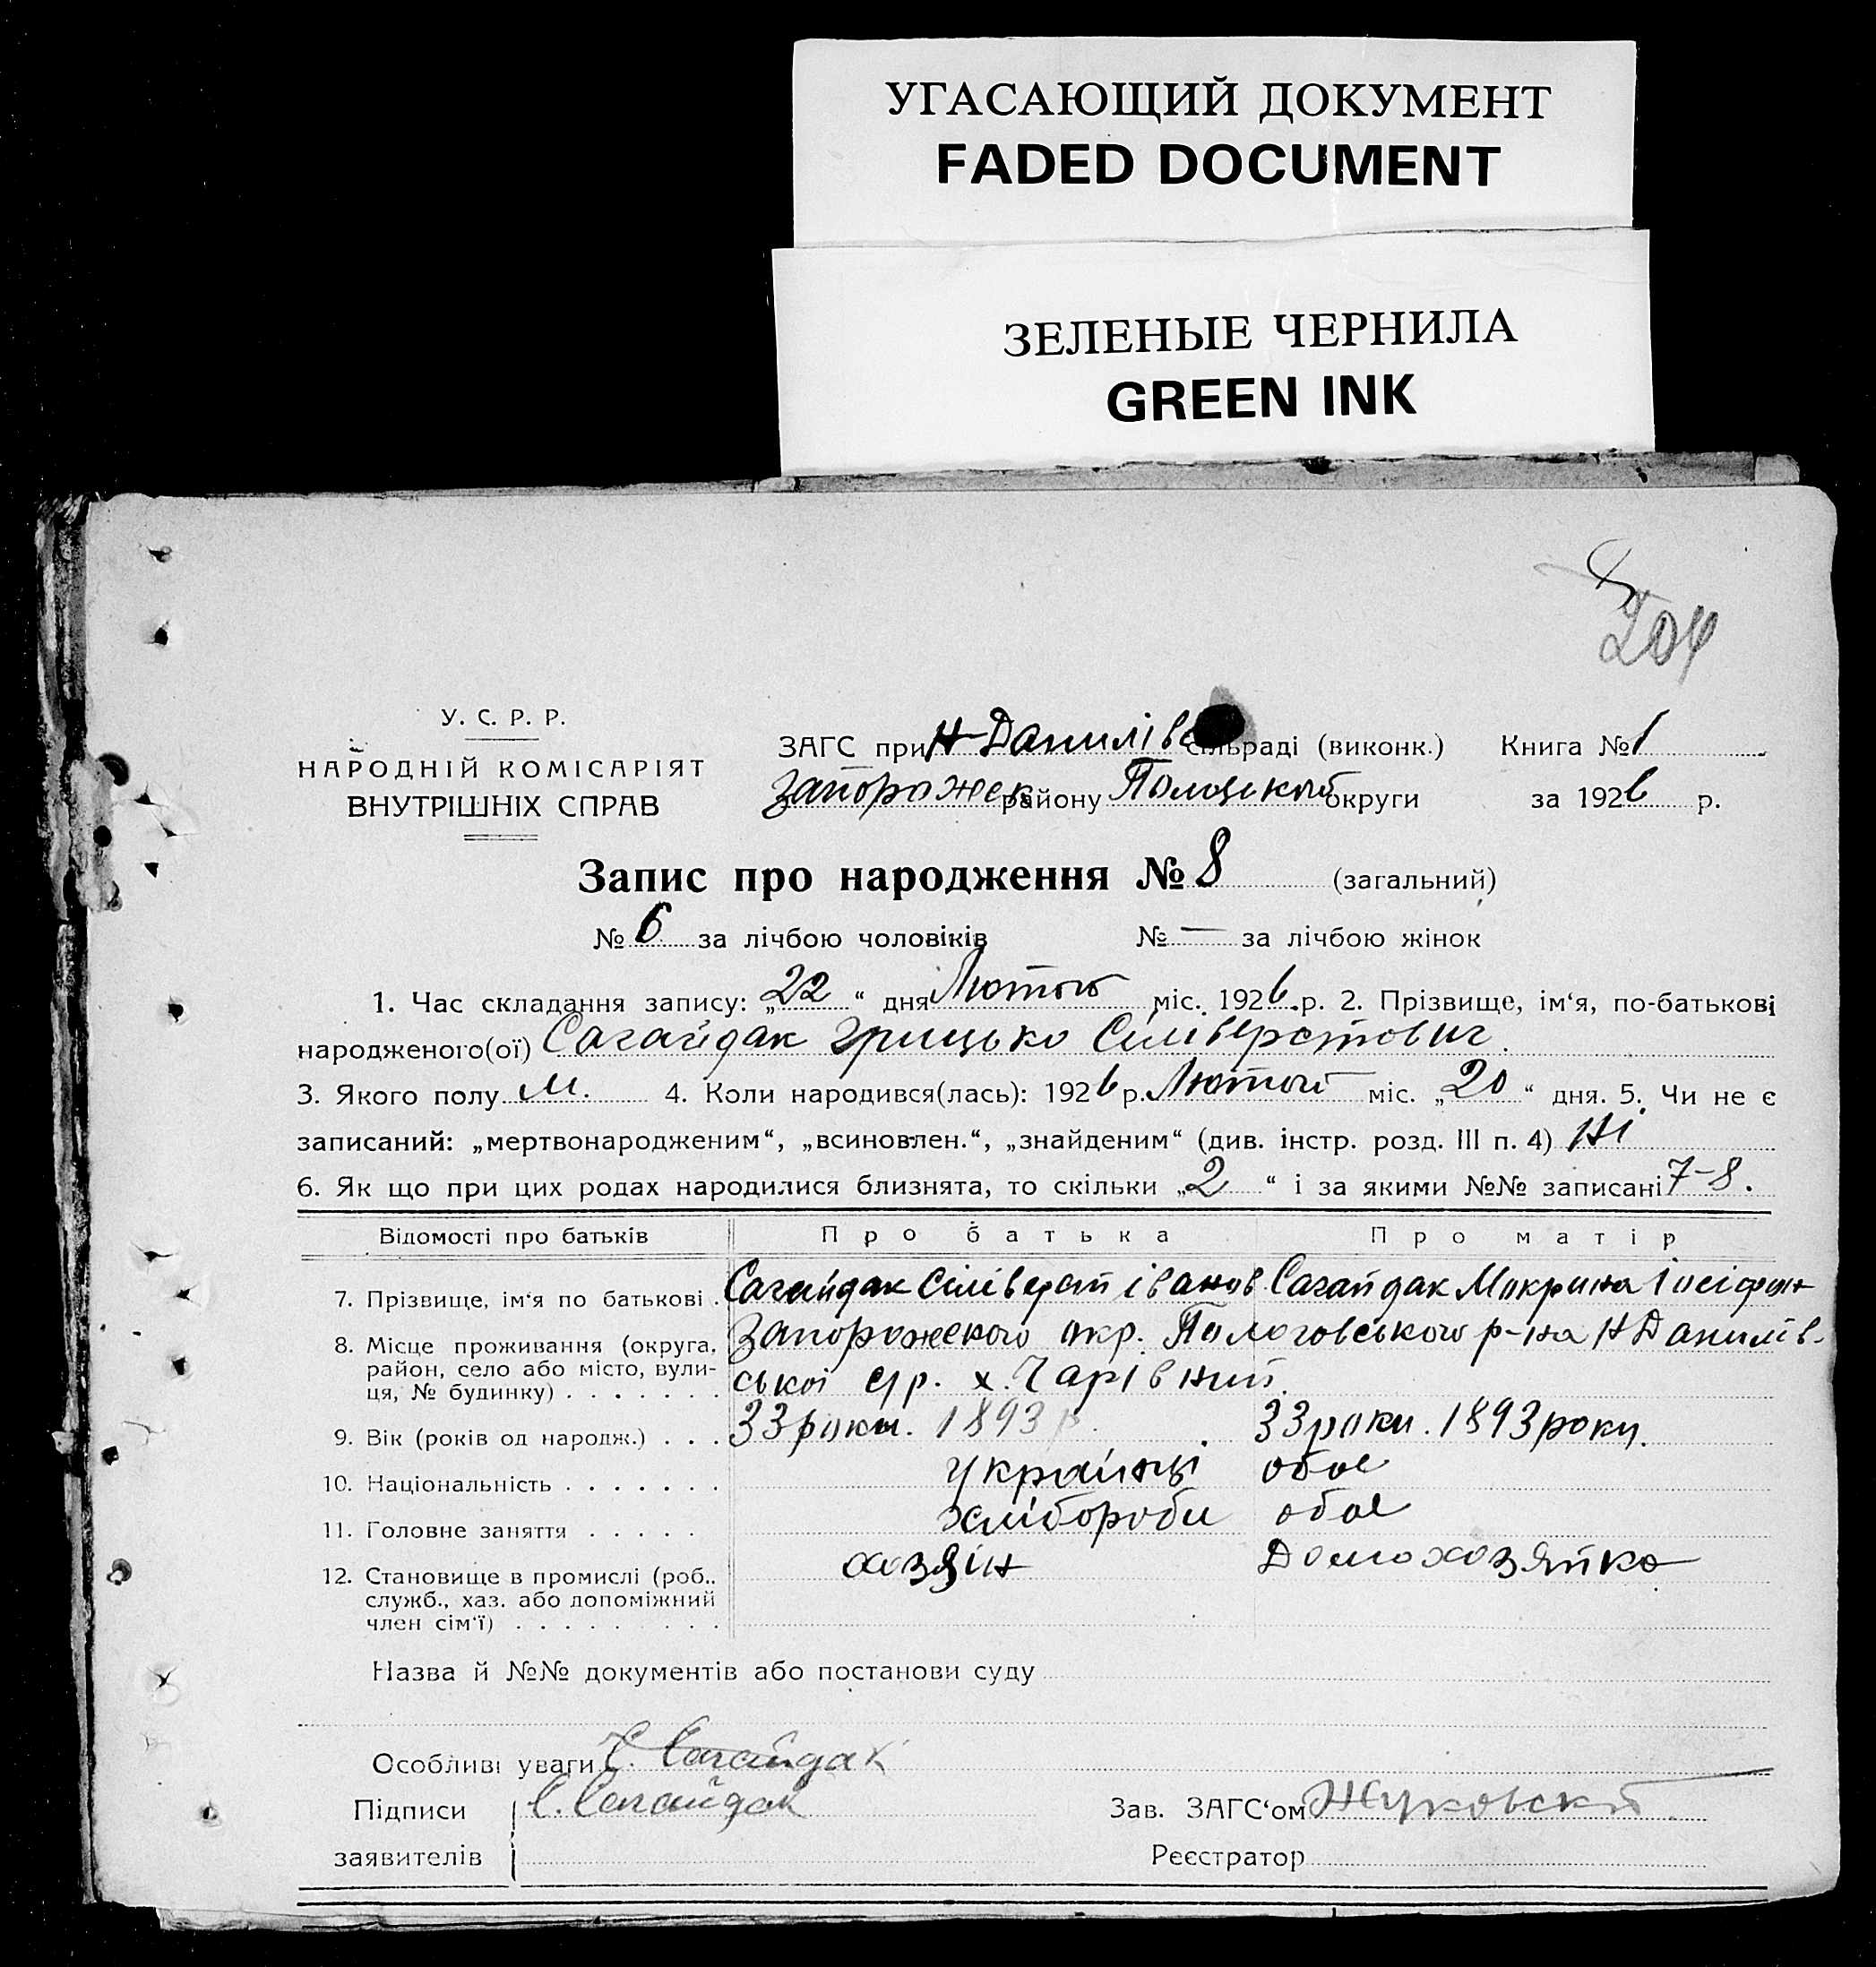 УГАСАЮЩИЙ ДОКУМЕНТ
FADED DOCUMENT
ЗЕЛЕНЫЕ ЧЕРНИЛА
GREEN INK
204
У. С. Р. Р.
НАРОДНІЙ КОМІСАРІЯТ
ВНУТРІШНІХ СПРАВ
ЗАГС при Н-Данилівс сільраді (виконк.) Книга № 1
Запорожск району Пологської округи за 1926 р.
Запис про народження № 8 (загальний)
№ 6 за лічбою чоловіків № — за лічбою жінок
1. Час складання запису: „22“ дня Лютого міс. 1926 р. 2. Прізвище, ім‘я, по-батькові
народженого(ої) Сагайдак Грицько Сілівερстович.
3. Якого полу М. 4. Коли народився(лась): 1926 р. Лютого міс. „20“ дня. 5. Чи не є
записаний: „мертвонародженим“, „всиновлен.“, „знайденим“ (див. інстр. розд. III п. 4) Ні
6. Як що при цих родах народилися близнята, то скільки „2“ і за якими №№ записані 7-8.
Відомості про батьків Про батька Про матір
7. Прізвище, ім‘я по батькові . Сагайдак Сіліверст іванов Сагайдак Мокрина Іосіфон
8. Місце проживання (округа, Запорожського окр. Пологовського р-на Н Данилів-
район, село або місто, вули- ської с/р. х. Чарівний.
ця, № будинку) . . . . . . .
9. Вік (років од народж.) . . . 33 роки. 1893 р. 33 роки. 1893 року.
10. Національність . . . . . . . українці обоє
11. Головне заняття . . . . . хлібороби обоє
12. Становище в промислі (роб., хозяін Домохозяйка
служб., хаз. або допоміжний
член сім‘ї) . . . . . . . . .
Назва й №№ документів або постанови суду
Особливі уваги С. Сагайдак
Підписи С. Сагайдак Зав. ЗАГС‘ом Жуковський
заявителів Реєстратор